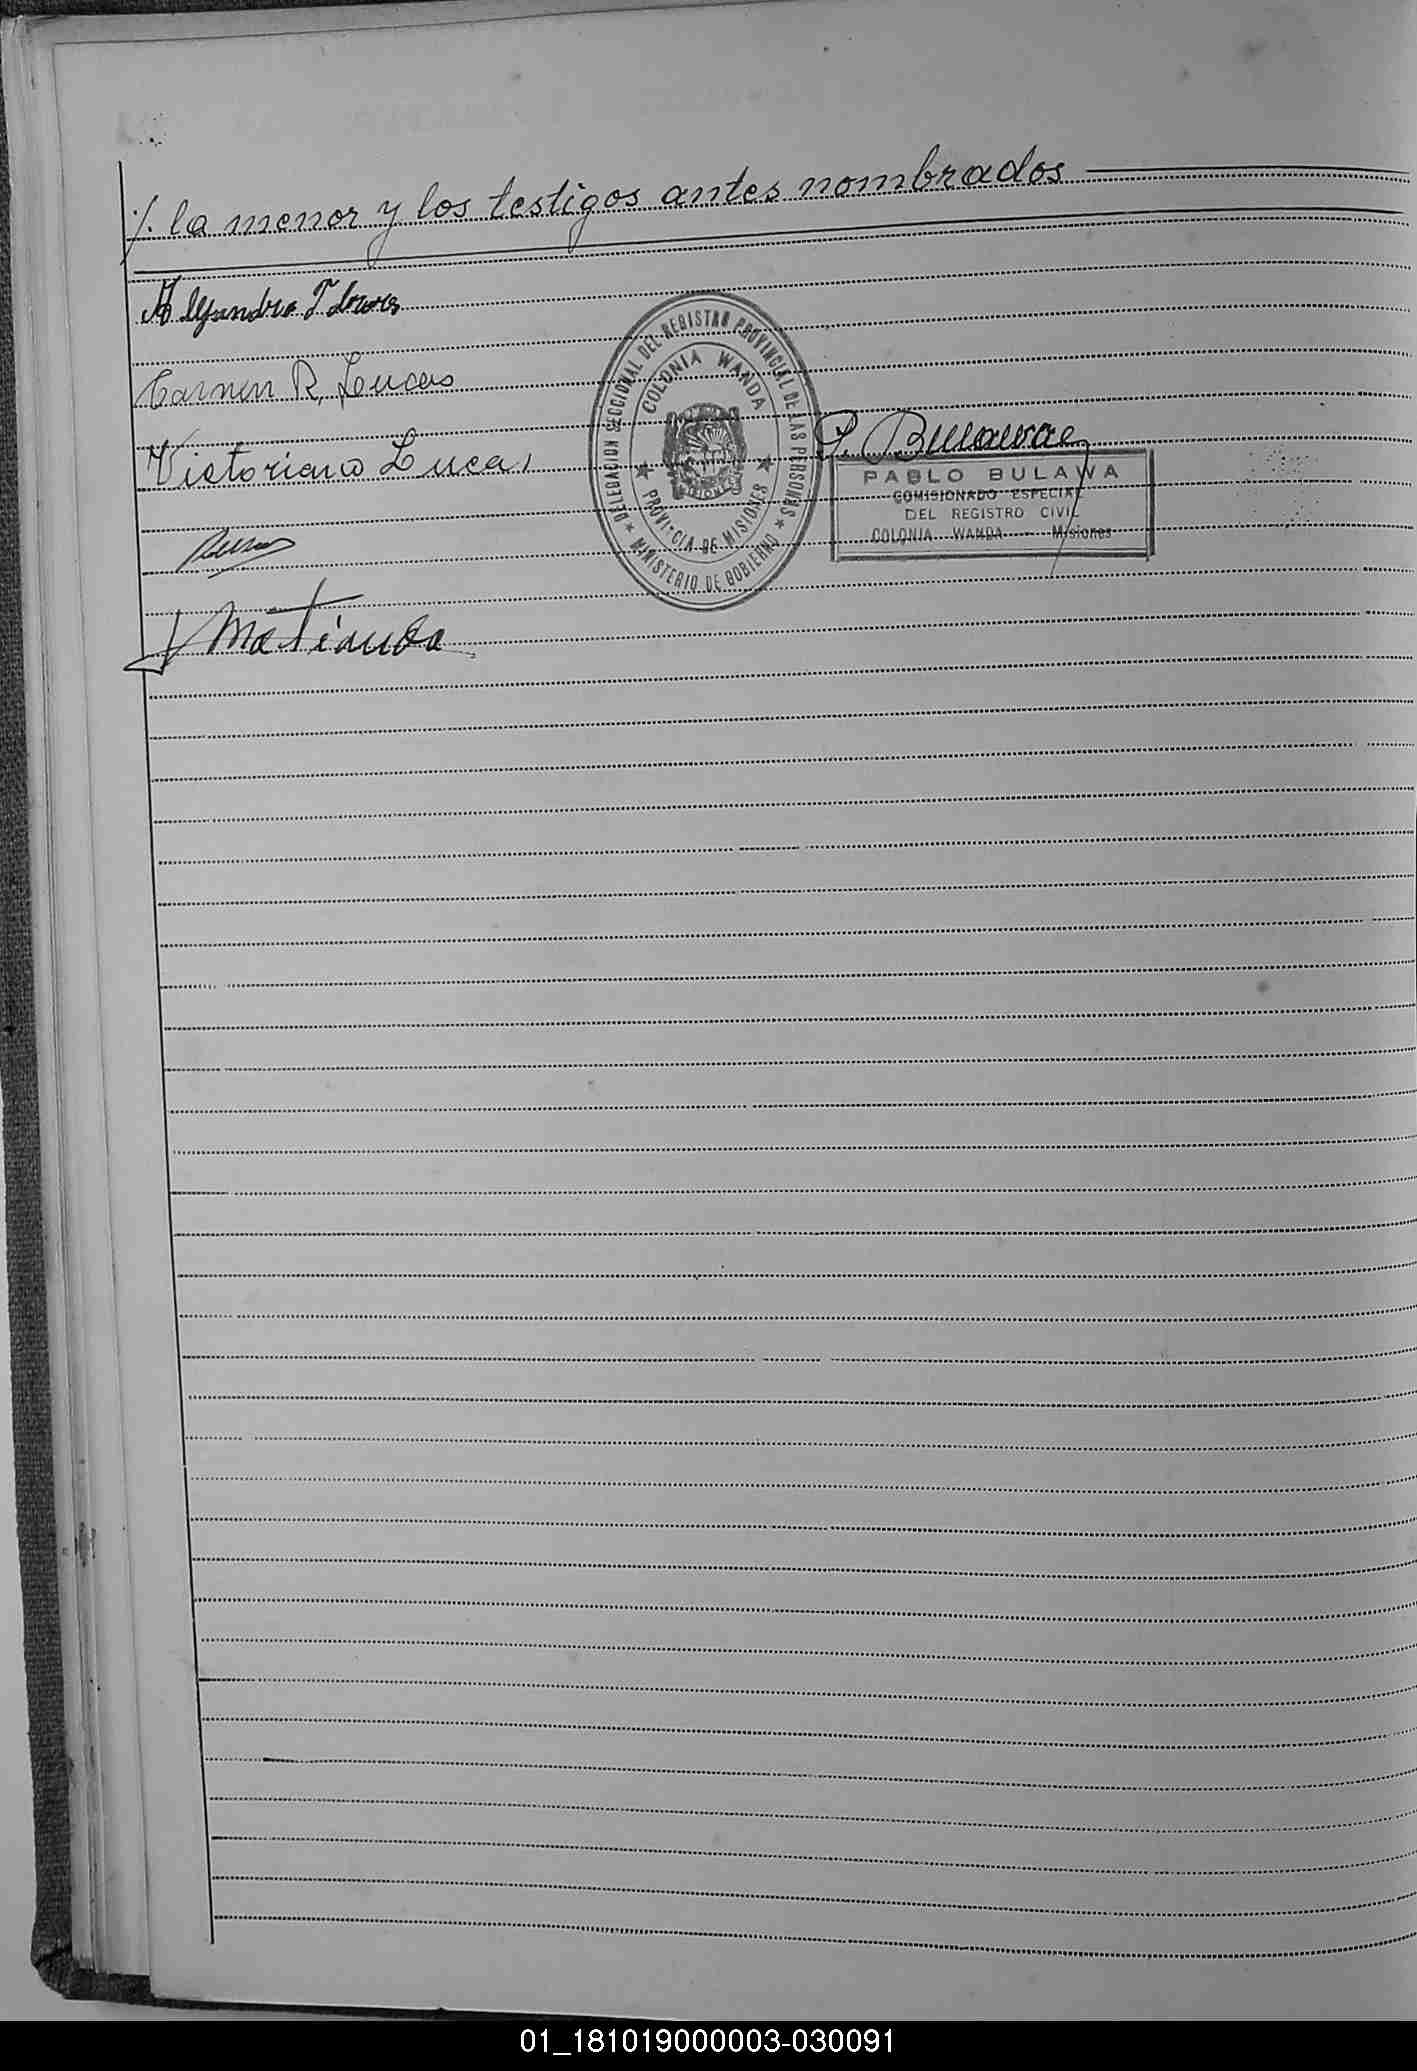 ./. la menor y los testigos antes nombrados
Alejandro Flores
Carmen R. Lucas
Victoriano Lucas
DELEGACION SECCIONAL DEL REGISTRO PROVINCIAL DE LAS PERSONAS
COLONIA WANDA
MISIONES
PROVINCIA DE MISIONES
MINISTERIO DE GOBIERNO
P. Bulawa
PABLO BULAWA
COMISIONADO ESPECIAL
DEL REGISTRO CIVIL
COLONIA WANDA - Misiones
01_181019000003-030091